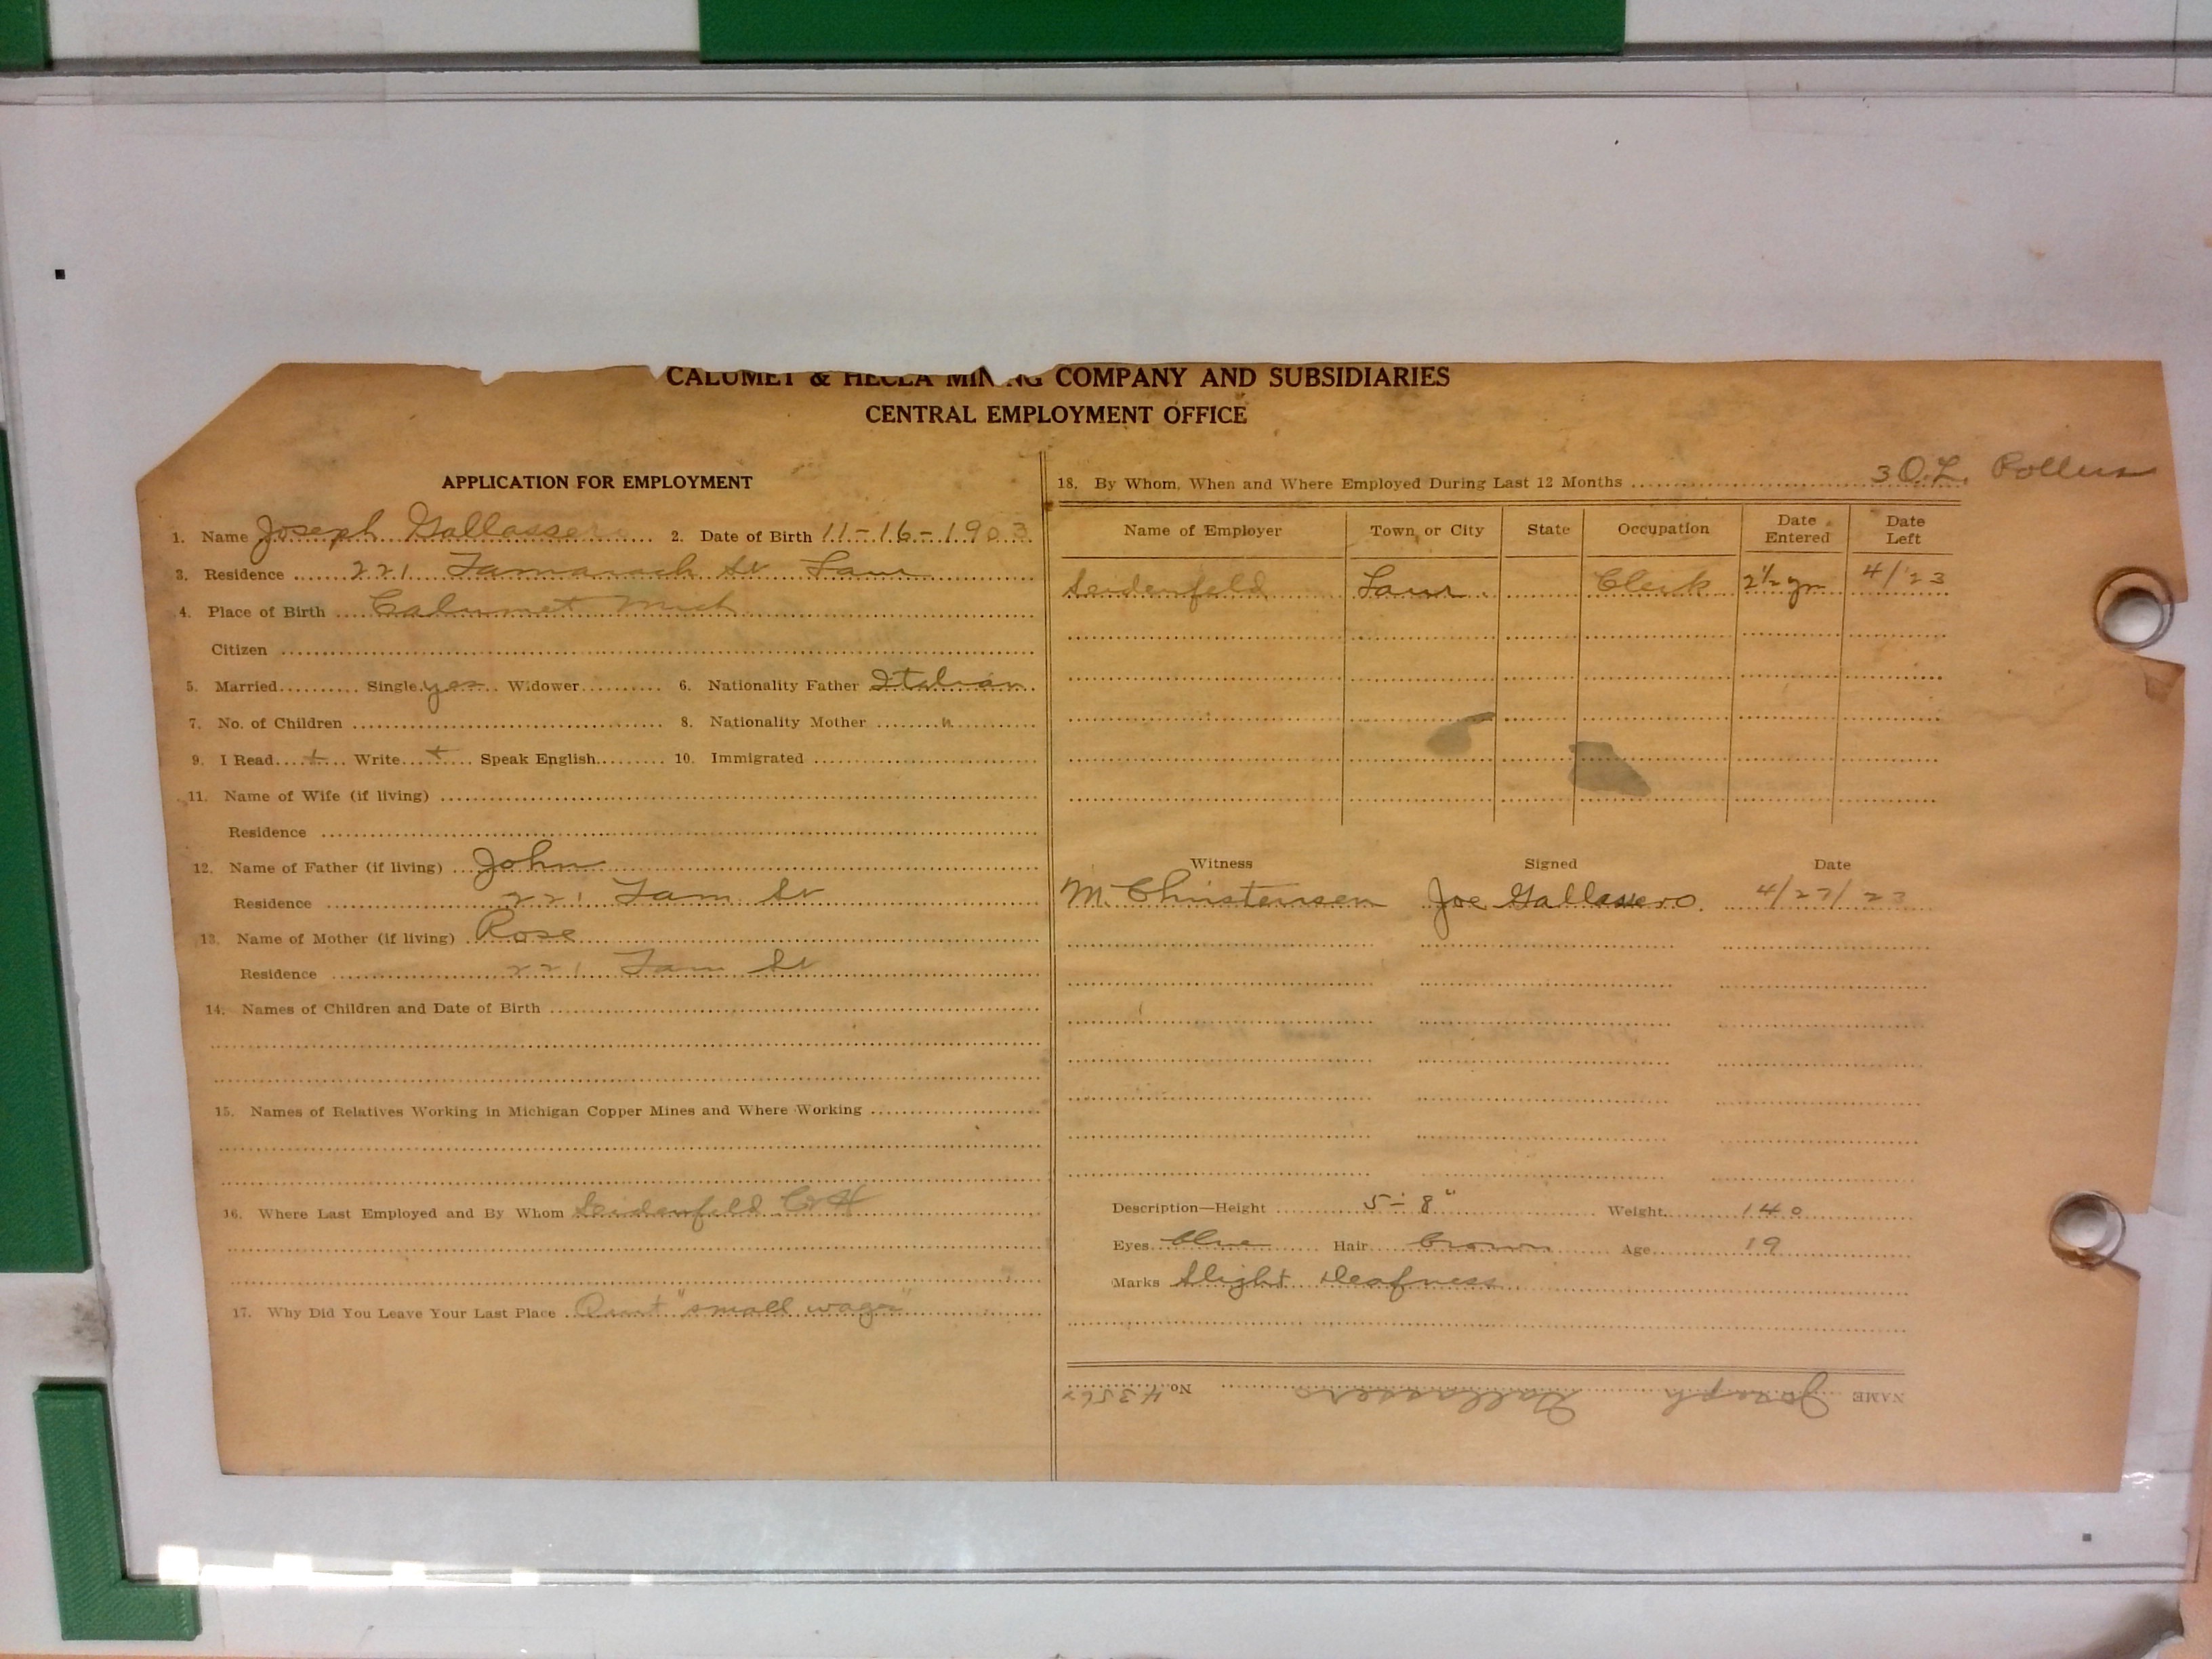 CALUMET & HECLA MINING COMPANY AND SUBSIDIARIES
CENTRAL EMPLOYMENT OFFICE
APPLICATION FOR EMPLOYMENT
1. Name Joseph Gallassero 2. Date of Birth 11-16-1903
3. Residence 221 Tamarack St Laur
4. Place of Birth Calumet Mich
Citizen
5. Married Single yes Widower 6. Nationality Father Italian
7. No. of Children 8. Nationality Mother "
9. I Read + Write + Speak English 10. Immigrated
11. Name of Wife (if living)
Residence
12. Name of Father (if living) John
Residence 221 Tam St
13. Name of Mother (if living) Rose
Residence 221 Tam St
14. Names of Children and Date of Birth
15. Names of Relatives Working in Michigan Copper Mines and Where Working
16. Where Last Employed and By Whom Seidenfeld C&H
17. Why Did You Leave Your Last Place "small wages"
18. By Whom, When and Where Employed During Last 12 Months 3 O.L.
Name of Employer Town or City State Occupation Date Entered Date Left
Seidenfeld Laur Clerk 2½ yr 4/23
Witness Signed Date
M. Christensen Joe Gallassero. 4/27/23
Description—Height 5-8" Weight 140
Eyes blue Hair brown Age 19
Marks Slight deafness
NAME Joseph Gallassero No.